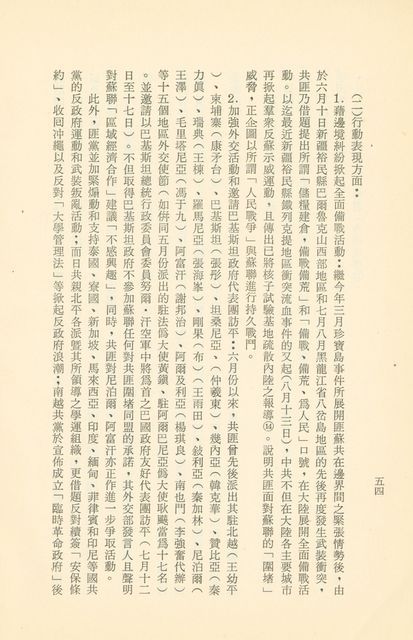 (二)行動表現方面：
1.藉邊境糾紛掀起全面備戰活動：繼今年三月珍寶島事件所展開匪蘇共在邊界間之緊張情勢後，由
於六月十日新疆裕民縣巴爾魯克山西部地區和七月八月黑龍江省八岔島地區的先後再度發生武裝衝突，
共匪乃借題提出所謂「儲糧建倉，備戰備荒」和「備戰、備荒、爲人民」口號，在大陸展開全面備戰活
動。以迄最近新疆裕民縣鐵列克提地區衝突流血事件的又起(八月十三日)，中共不但在大陸各主要城市
再掀起羣衆反蘇示威運動，且傳出已將核子試驗基地疏散內陸之報導⑭。說明共匪面對蘇聯的「圍堵」
威脅，正企圖以所謂「人民戰爭」與蘇聯進行持久戰鬥。
2.加強外交活動和邀請巴基斯坦政府代表團訪平：六月份以來，共匪曾先後派出其駐北越(王幼平
)、柬埔寨(康矛台)、巴基斯坦(張彤)、坦桑尼亞、(仲曦東)、幾內亞(韓克華)、贊比亞(秦
力眞)、瑞典(王棟)、羅馬尼亞(張海峯)、剛果(布)(王雨田)、敍利亞(秦加林)、尼泊爾(
王澤)、毛里塔尼亞(馮于九)、阿富汗(謝邦治)、阿爾及利亞(楊琪良)、南也門(李強奮代辦)
等十五個地區外交使節(如併同五月份派出的駐法僞大使黃鎮、駐阿爾巴尼亞僞大使耿飈當爲十七名)
。並邀請以巴基斯坦總統行政委員會委員努爾·汗空軍中將爲首之巴國政府友好代表團訪平(七月十二
日至十七日)。不但取得巴基斯坦政府不參加蘇聯任何對共匪圍堵同盟的承諾，其外交部發言人且聲明
對蘇聯「區域經濟合作」建議「不感興趣」，同時，共匪對尼泊爾、阿富汗亦正作進一步爭取活動。
此外，匪黨並加緊煽動和支持泰國、寮國、新加坡、馬來西亞、印度、緬甸、菲律賓和印尼等國共
黨的反政府運動和武裝叛亂活動；而日共親北平各派暨其所領導之學運組織，更借題反對續簽「安保條
約」、收回沖繩以及反對「大學管理法」等掀起反政府浪潮；南越共黨於宣佈成立「臨時革命政府」後
五四